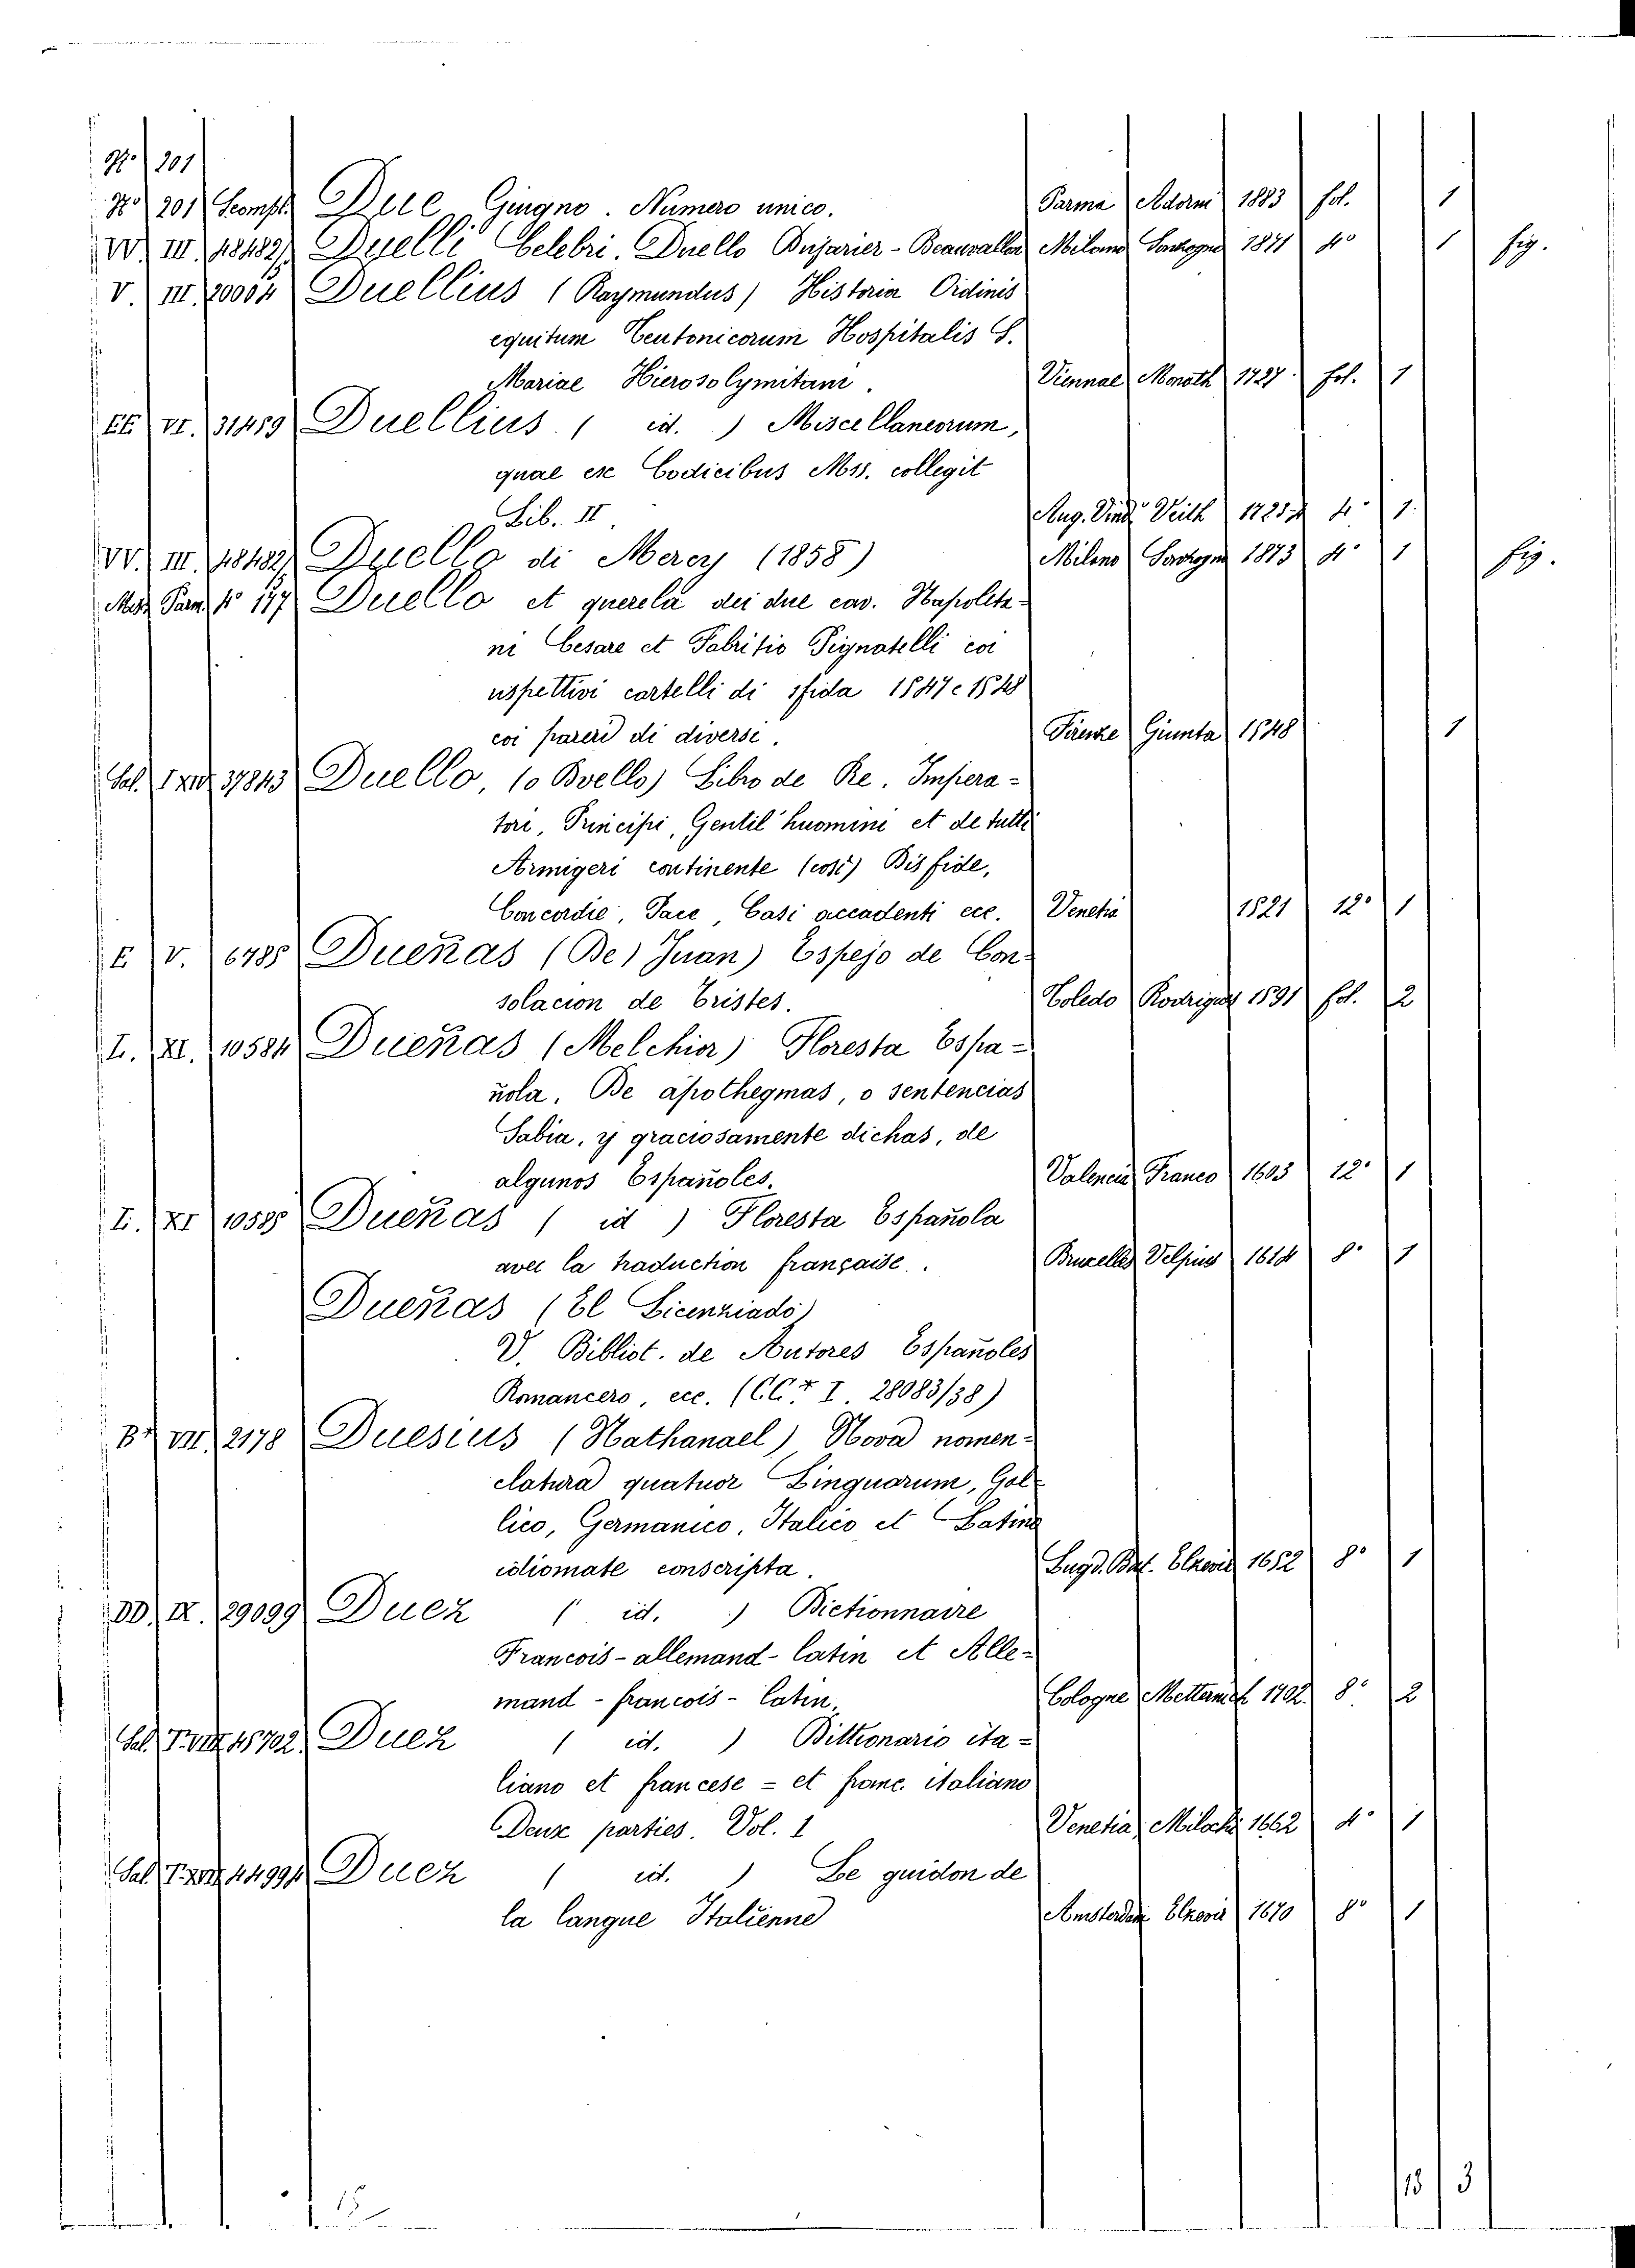 No. 201
No 201 Scomp. Due Giugno. Numero unico. Parma Adorni 1883 fol. 1
W. III. 18482/ Duelli Celebri. Duello Dujarier-Beauvallon Milano Sonzogno 1871 4o 1 fig.
V. III. 20004 Duellius (Raymundus) Historia Ordinis
equitum Teutonicorum Hospitalis S.
Mariae Hierosolymitani. Viennae Monath 1727. fol. 1
EE VI. 31459 Duellius. ( id. ) Miscellaneorum,
quae ex Codicibus Mss. collegit
Lib. II. Aug. Vind. Veith 1723 4o 1.
W. III. 18482/ Duello di Mercy (1858) Milano Sonzogno 1873 4o 1 fig.
Misc. Parm. fo 177 Duello et querela dei due cav. Napolita-
ni Cesare et Fabritio Pignatelli coi
rispettivi cartelli di sfida 1547 e 1548
coi pareri di diversi. Firenze Giunta 1548 1
Sal. I XVI 37843 Duello, (o Dvello) Libro de Re. Impera-
tori, Principi, Gentil'huomini et de tutti
Armigeri continente (così) Disfide,
Concordie, Pace, Casi accadenti ecc. Venetia 1521 12o 1
E V. 6785 Dueñas (De) Juan) Espejo de Con-
solacion de Tristes. Toledo Rodriguez 1591 fol. 2
I. XI. 10584 Dueñas (Melchior) Floresta Espa-
ñola, De apothegmas, o sentencias
Sabia, y graciosamente dichas, de
algunos Españoles. Valencia Franco 1603 12o 1
I. XI 10585 Dueñas ( id ) Floresta Española
avec la traduction française. Bruxelles Velpius 1614 8o 1
Dueñas (El Licenziado)
V. Bibliot. de Autores Españoles
Romancero, ecc. (CC.* I. 28083/38)
B* VII. 2178 Duesius (Nathanael) Nova nomen-
clatura quatuor Linguarum, Gal-
lico, Germanico, Italico et Latino
idiomate conscripta. Lugd. Bat. Elzevir 1652 8o 1
DD. IX. 29099 Duez ( id. ) Dictionnaire
Francois-allemand-latin et Alle-
mand-francois-latin. Cologne Metternich 1702 8o 2
Sal. T. VIII. 45702. Duez ( id. ) Dittionario ita-
liano et francese = et franc. italiano
Deux parties. Vol. 1 Venetia, Milochi 1662 4o 1
Sal. T. XVI. 44991 Duez ( id. ) Le guidon de
la langue Italienne Amsterdam Elzevir 1670 8o 1
18 3
15